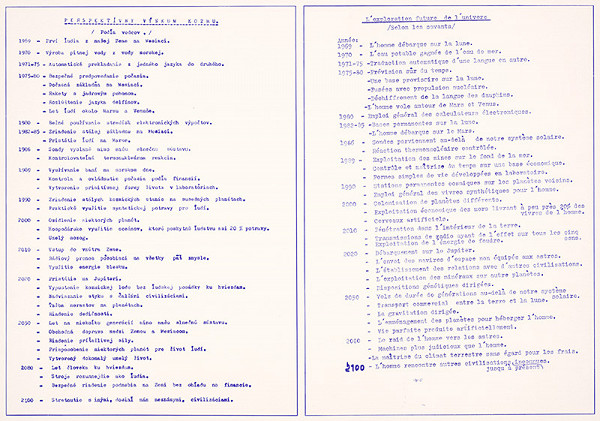 PERSPEKTÍVNY VÝSKUM KOZMU.
/ Podľa vedcov. /
1969 - Prví ľudia z našej Zeme na Mesiaci.
1970 - Výroba pitnej vody z vody morskej.
1971-75 - Automatické prekladanie z jedného jazyka do druhého.
1975-80 - Bezpečné predpovedanie počasia.
- Dočasná základňa na Mesiaci.
- Rakety s jadrovým pohonom.
- Rozlúštenie jazyka delfínov.
- Let ľudí okolo Marsu a Venuše.
1980 - Bežné používanie elektronických výpočtov.
1982-85 - Zriadenie stálej základne na Mesiaci.
- Pristátie ľudí na Marse.
1986 - Sondy vyslané mimo našu slnečnú sústavu.
- Kontrolovateľná termonukleárna reakcia.
1989 - Využívanie baní na morskom dne.
- Kontrola a ovládanie počasia podľa financií.
- Vytvorenie primitívnej formy života v laboratóriach.
1990 - Zriadenie stálych kozmických staníc na susedných planétach.
- Praktické využitie syntetickej potravy pre ľudí.
2000 - Osídlenie niektorých planét.
- Hospodárske využitie oceánov, ktoré poskytnú ľudstvu asi 20 % potravy.
- Umelý mozog.
2010 - Vstup do vnútra Zeme.
- Rádiový prenos pôsobiaci na všetky päť zmysle.
- Využitie energie blesku.
2020 - Pristátie na Jupiteri.
- Vypustenie kozmickej lode bez ľudskej posádky ku hviezdam.
- Nadviazanie styku s ďalšími civilizáciami.
- Ťažba nerastov na planétach.
- Riadenie dedičnosti.
2030 - Let na niekoľko generácií mimo našu slnečnú sústavu.
- Obchodná doprava medzi Zemou a Mesiacom.
- Riadenie príťažlivej sily.
- Prispôsobenie niektorých planét pre život ľudí.
- Vytvorený dokonalý umelý život.
2080 - Let človeka ku hviezdam.
- Stroje rozumnejšie ako ľudia.
- Bezpečné riadenie podnebia na Zemi bez ohľadu na financie.
2100 - Stretnutie s inými, dosiaľ nám neznámymi, civilizáciami.
L'exploration future de l'univers
/Selon les savants/
Année:
1969 - L'homme débarque sur la lune.
1970 - L'eau potable gagnée de l'eau de mer.
1971-75 -Traduction automatique d'une langue en autre.
1975-80 -Prévision sûr du temps.
-Une base provisoire sur la lune.
-Fusées avec propulsion nucléaire.
-Déchiffrement de la langue des dauphins.
-L'homme vole autour de Mars et Venus.
1980 - Emploi général des calculateurs électroniques.
1982-85 -Bases permanentes sur la lune.
-L'homme débarque sur le Mars.
1986 - Sondes parviennent au-delà de notre système solaire.
- Réaction thermonucléaire contrôlée.
1989 - Exploitation des mines sur le fond de la mer.
- Contrôle et maîtrise du temps sur une base économique.
- Formes simples de vie développées en laboratoire.
1990 - Stations permanentes cosmiques sur les planètes voisins.
- Emploi général des vivres synthétiques pour l'homme.
2000 - Colonisation de planètes différents.
- Exploitation économique des mers livrant à peu près 20% des
vivres de l'homme.
- Cerveaux artificiels.
2010 - Pénétration dans l'intérieur de la terre.
- Transmissions de radio ayant de l'effet sur tous les cinq
sens.
- Exploitation de l'énergie de foudre.
2020 - Débarquement sur la Jupiter.
- L'envoi des navires d'espace non équipés aux astres.
- L'établissement des relations avec d'autres civilisations.
- L'exploitation des minéraux sur autres planètes.
- Dispositions génétiques dirigées.
2030 - Vols de durée de générations au-delà de notre système
solaire.
- Transport commercial entre la terre et la lune.
- La gravitation dirigée.
- L'emménagement des planètes pour héberger l'homme.
- Vie parfaite produite artificielment.
2080 - Le raid de l'homme vers les astres.
- Machines plus judicieux que l'homme.
-La maîtrise du climat terrestre sans égard pour les frais.
2100 -L'homme rencontre autres civilisations inconnues
jusqu'à présent.